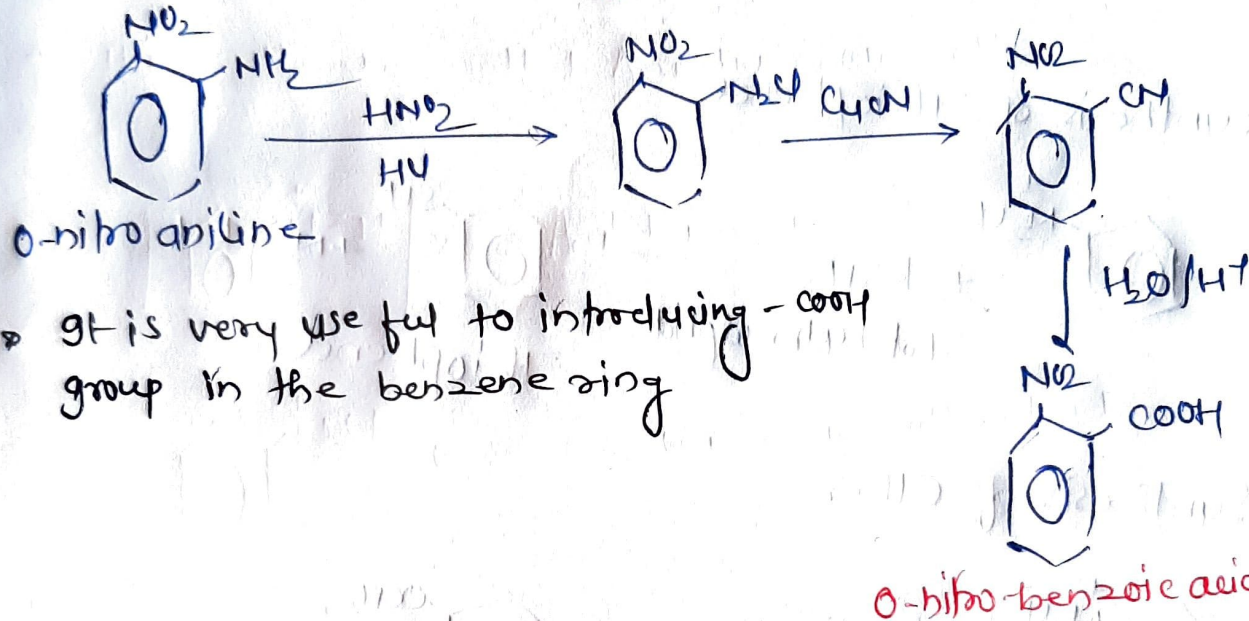 NO2
NH2
HNO2
HCl
NO2
N2Cl
CuCN
NO2
CN
o-nitro aniline
H2O/H+
It is very use ful to introducing - COOH
group in the benzene ring
NO2
COOH
O-nitro-benzoic acid